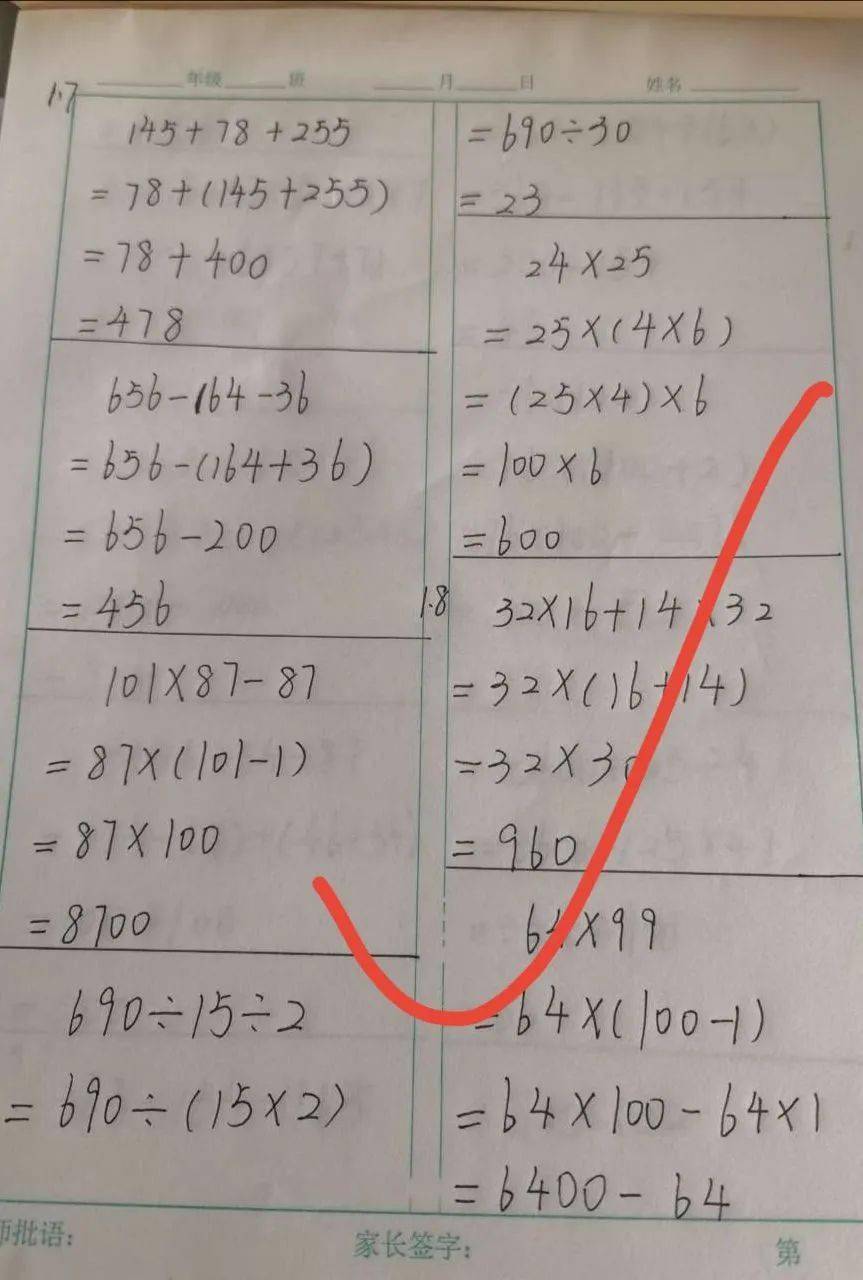 年级 班 月 日 姓名
1.7
145+78+255
=78+(145+255)
=78+400
=478
656-164-36
=656-(164+36)
=656-200
=456
101×87-87
=87×(101-1)
=87×100
=8700
690÷15÷2
=690÷(15×2)
=690÷30
=23
24×25
=25×(4×6)
=(25×4)×6
=100×6
=600
1.8
32×16+14×32
=32×(16+14)
=32×30
=960
64×99
=64×(100-1)
=64×100-64×1
=6400-64
师批语: 家长签字: 第